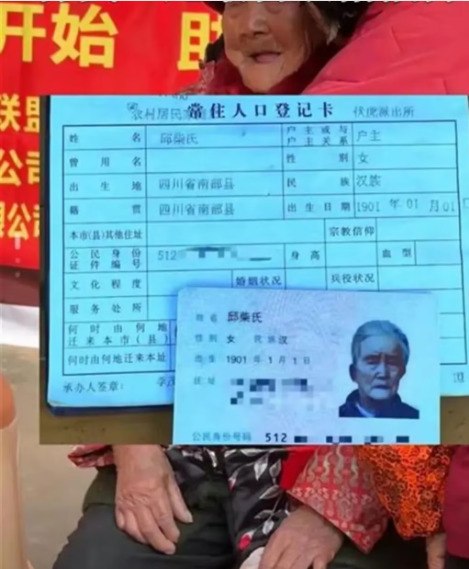 开始 助
联盟
公司
公司
农村居民家庭 常住人口登记卡 伏虎派出所
姓名 邱柴氏 户主或与户主关系 户主
曾用名 性别 女
出生地 四川省南部县 民族 汉族
籍贯 四川省南部县 出生日期 1901年01月01
本市(县)其他住址 宗教信仰
公民身份证件编号 512 身高 血型
文化程度 婚姻状况 兵役状况
服务处所
何时由何地迁来本市(县)
何时由何地迁来本址
承办人签章:
姓名 邱柴氏
性别 女 民族 汉
出生 1901年1月1日
住址
公民身份号码 512